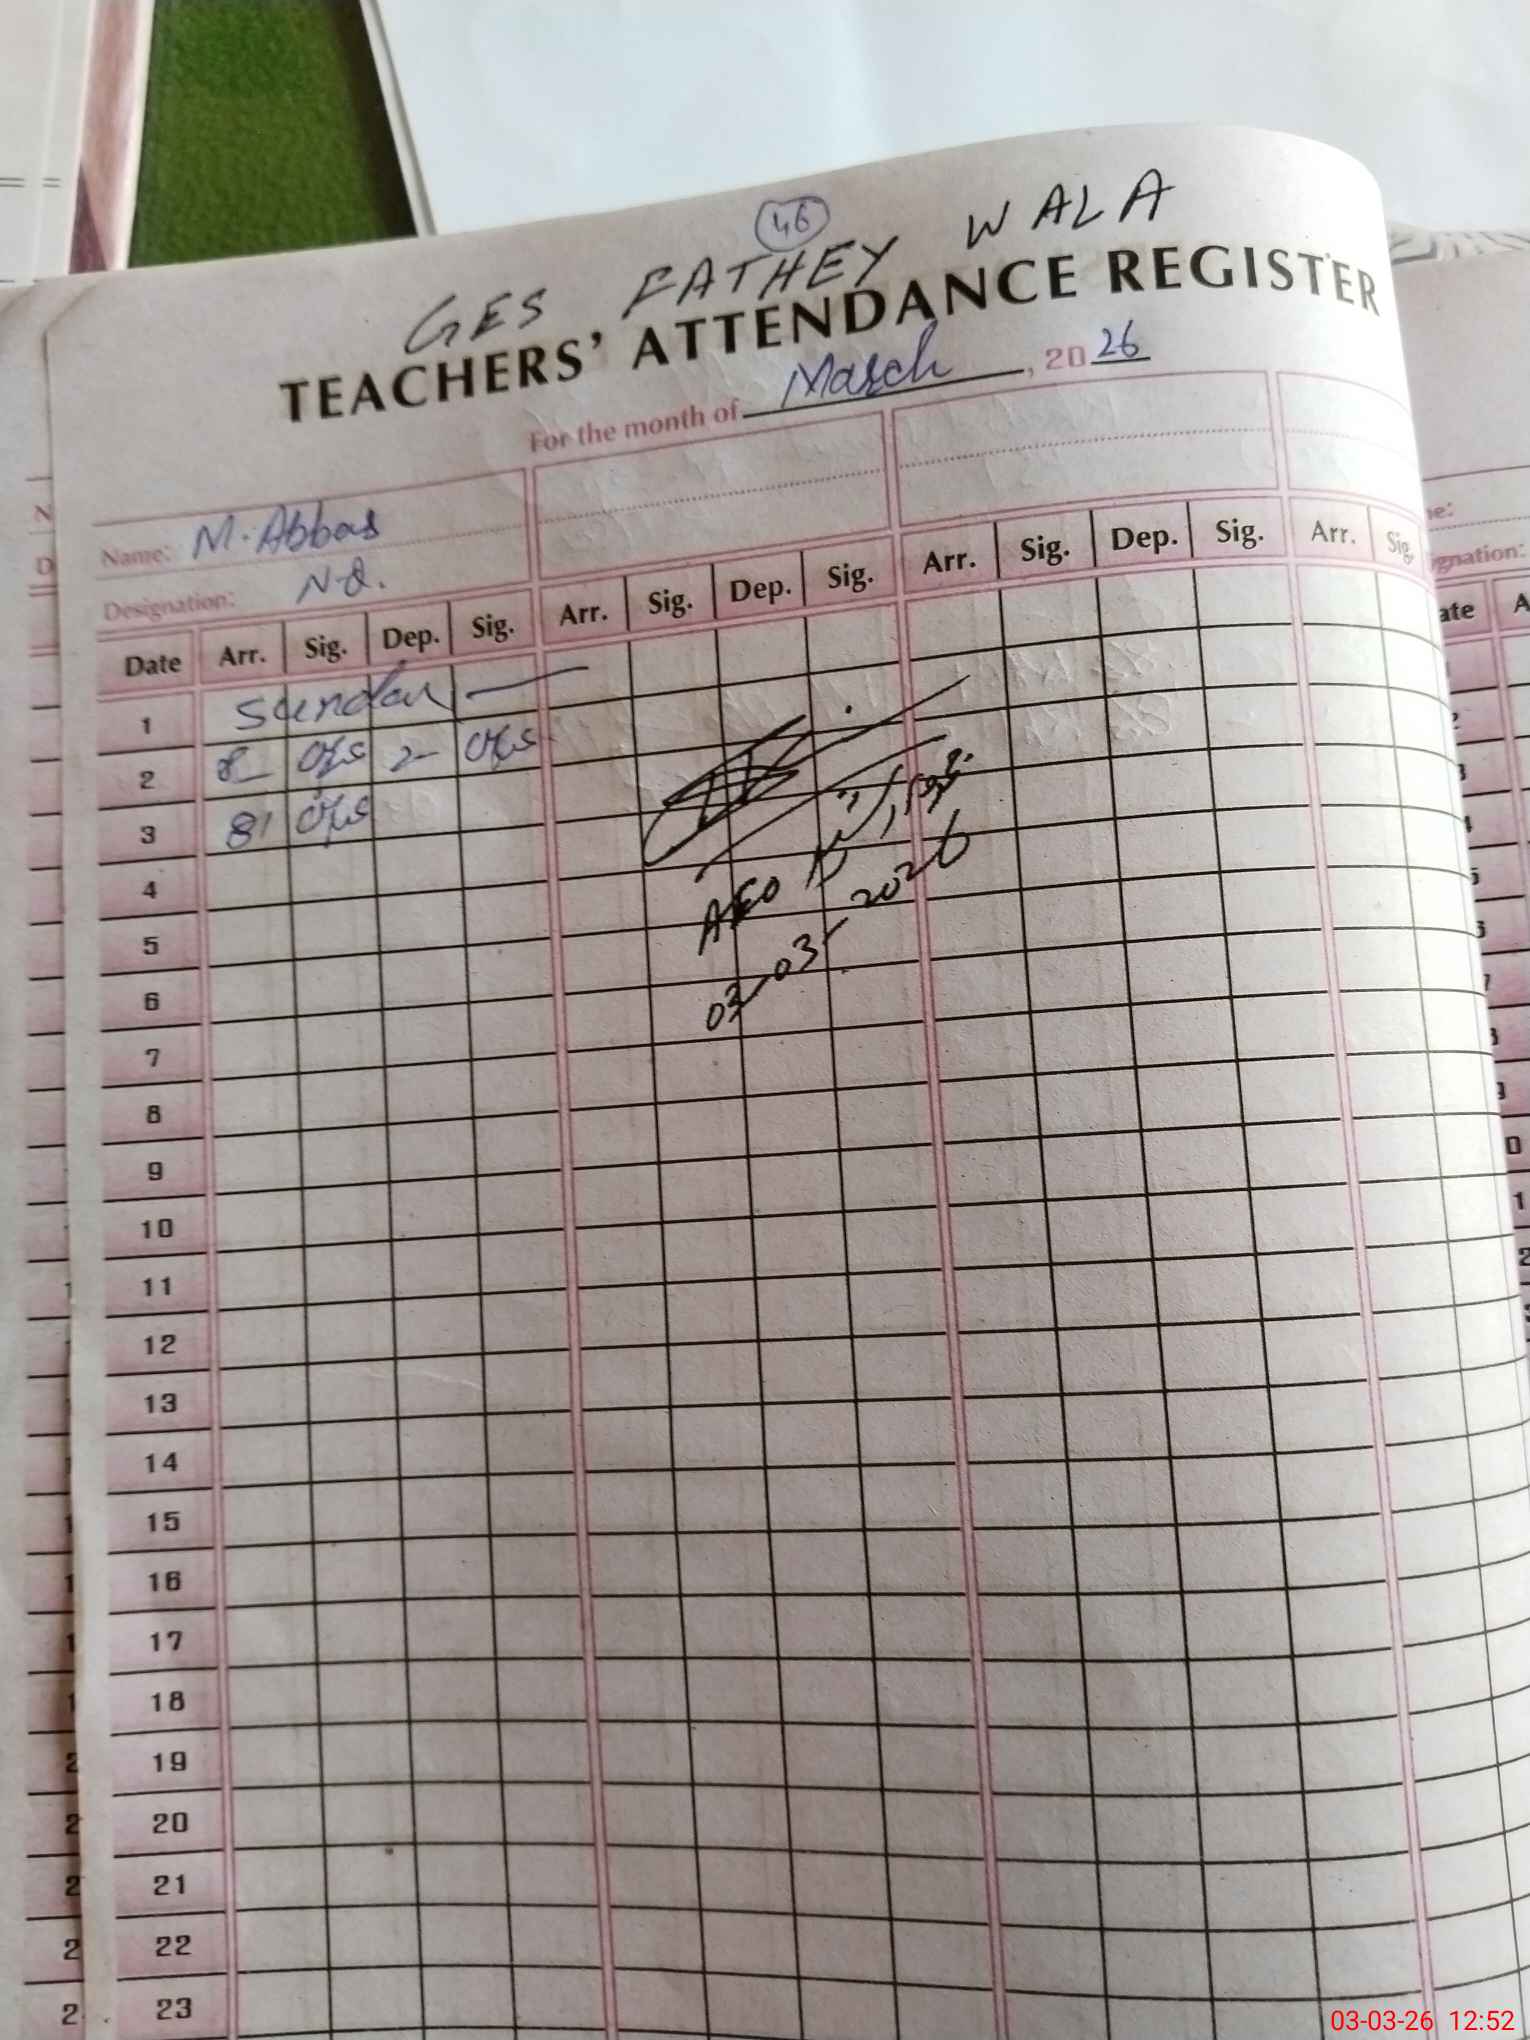 46
GES FATHEY WALA
TEACHERS' ATTENDANCE REGISTER
For the month of March, 2026
Name: M. Abbas
Designation: N.Q.
Date Arr. Sig. Dep. Sig. Arr. Sig. Dep. Sig. Arr. Sig. Dep. Sig. Arr. Sig.
1 Sunday
2 8 2
3 8
4
AEO
5
03-03-2026
6
7
8
9
10
11
12
13
14
15
16
17
18
19
20
21
22
23
03-03-26 12:52